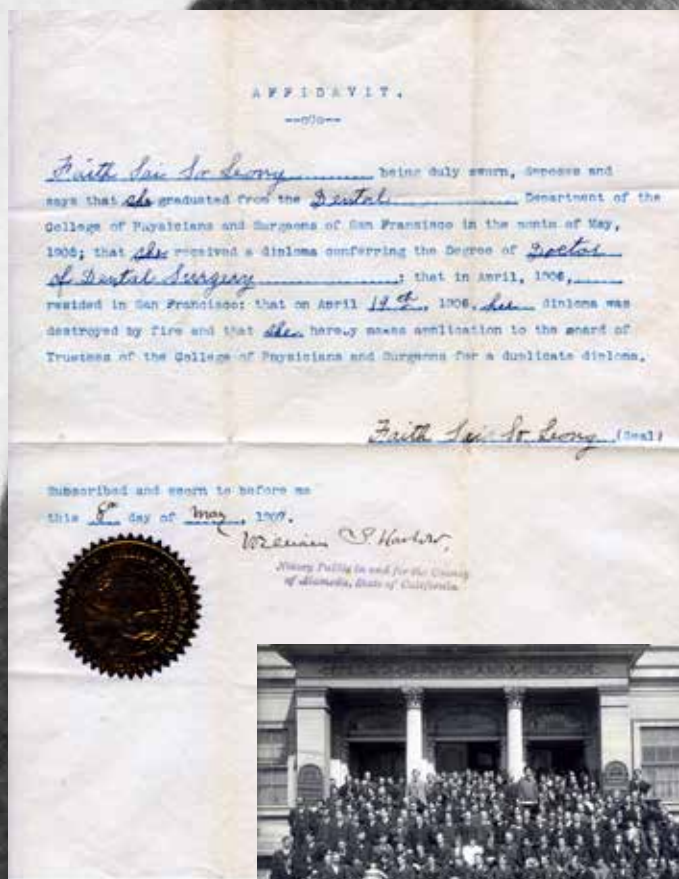 AFFIDAVIT.
--o0o--
Faith Sai So Leong being duly sworn, deposes and
says that she graduated from the Dental Department of the
College of Physicians and Surgeons of San Francisco in the month of May,
that she received a diploma conferring the Degree of Doctor
of Dental Surgery ; that in April, 1906,
resided in San Francisco: that on April 19th, 1906, her diploma was
destroyed by fire and that she hereby makes application to the Board of
Trustees of the College of Physicians and Surgeons for a duplicate diploma.
Faith Sai So Leong (Seal)
Subscribed and sworn to before me
this 8th day of May, 1907.
Notary Public in and for the County
of Alameda, State of California.
COLLEGE OF PHYSICIANS & SURGEONS